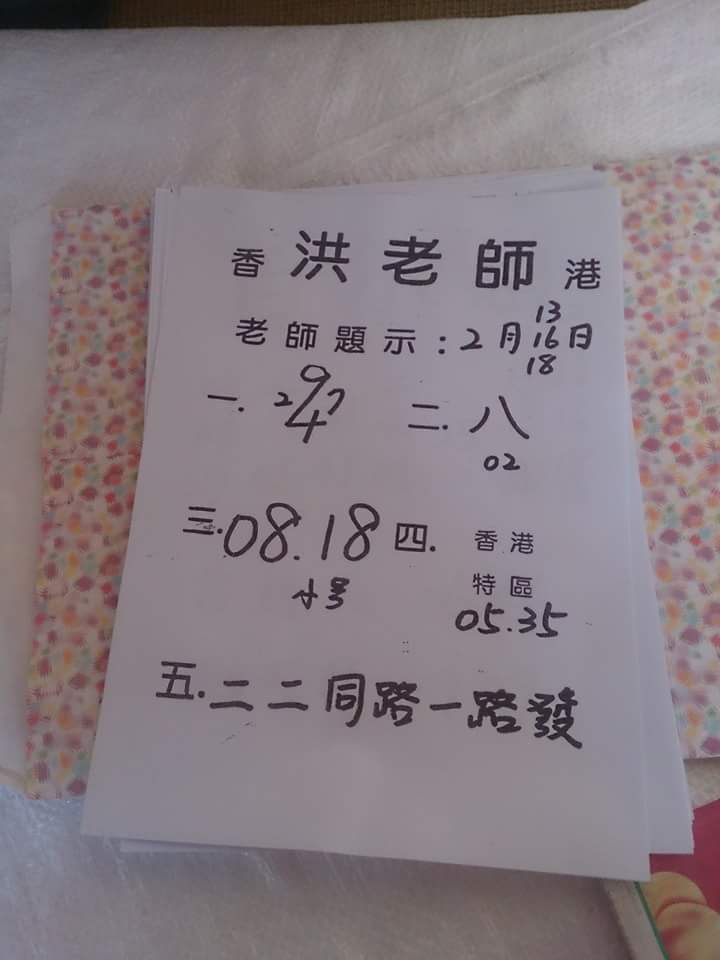 香洪老師港
13
老師題示：2月16日
18
9
一. 2 7 二. 八
4
02
三. 08.18 四. 香港
小号 特區
05.35
五. 二二同路一路發